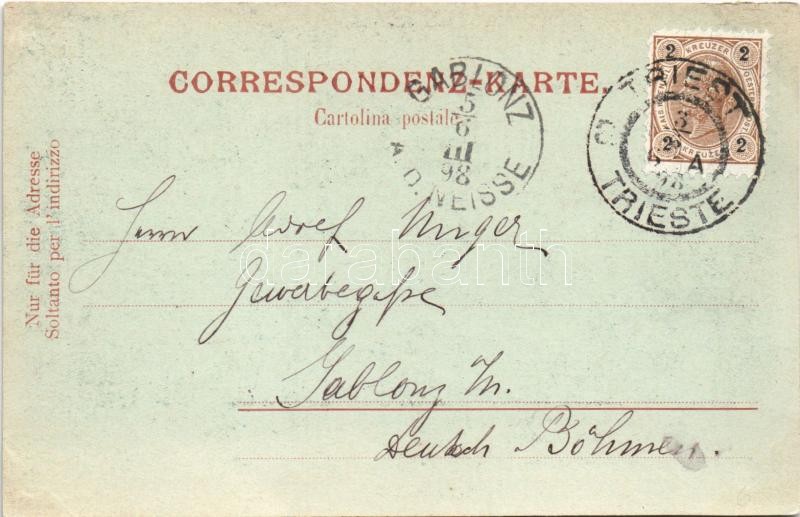 CORRESPONDENZ-KARTE.
Cartolina postale
Nur für die Adresse
Soltanto per l'indirizzo
2 KREUZER 2
2 KREUZER 2
TRIEST
3
TRIESTE
GABLONZ
5
6
III
98
A. D. NEISSE
Herrn Adolf Unger
Gewerbegasse
Gablonz N.
Deutsch Böhmen.
darabanth